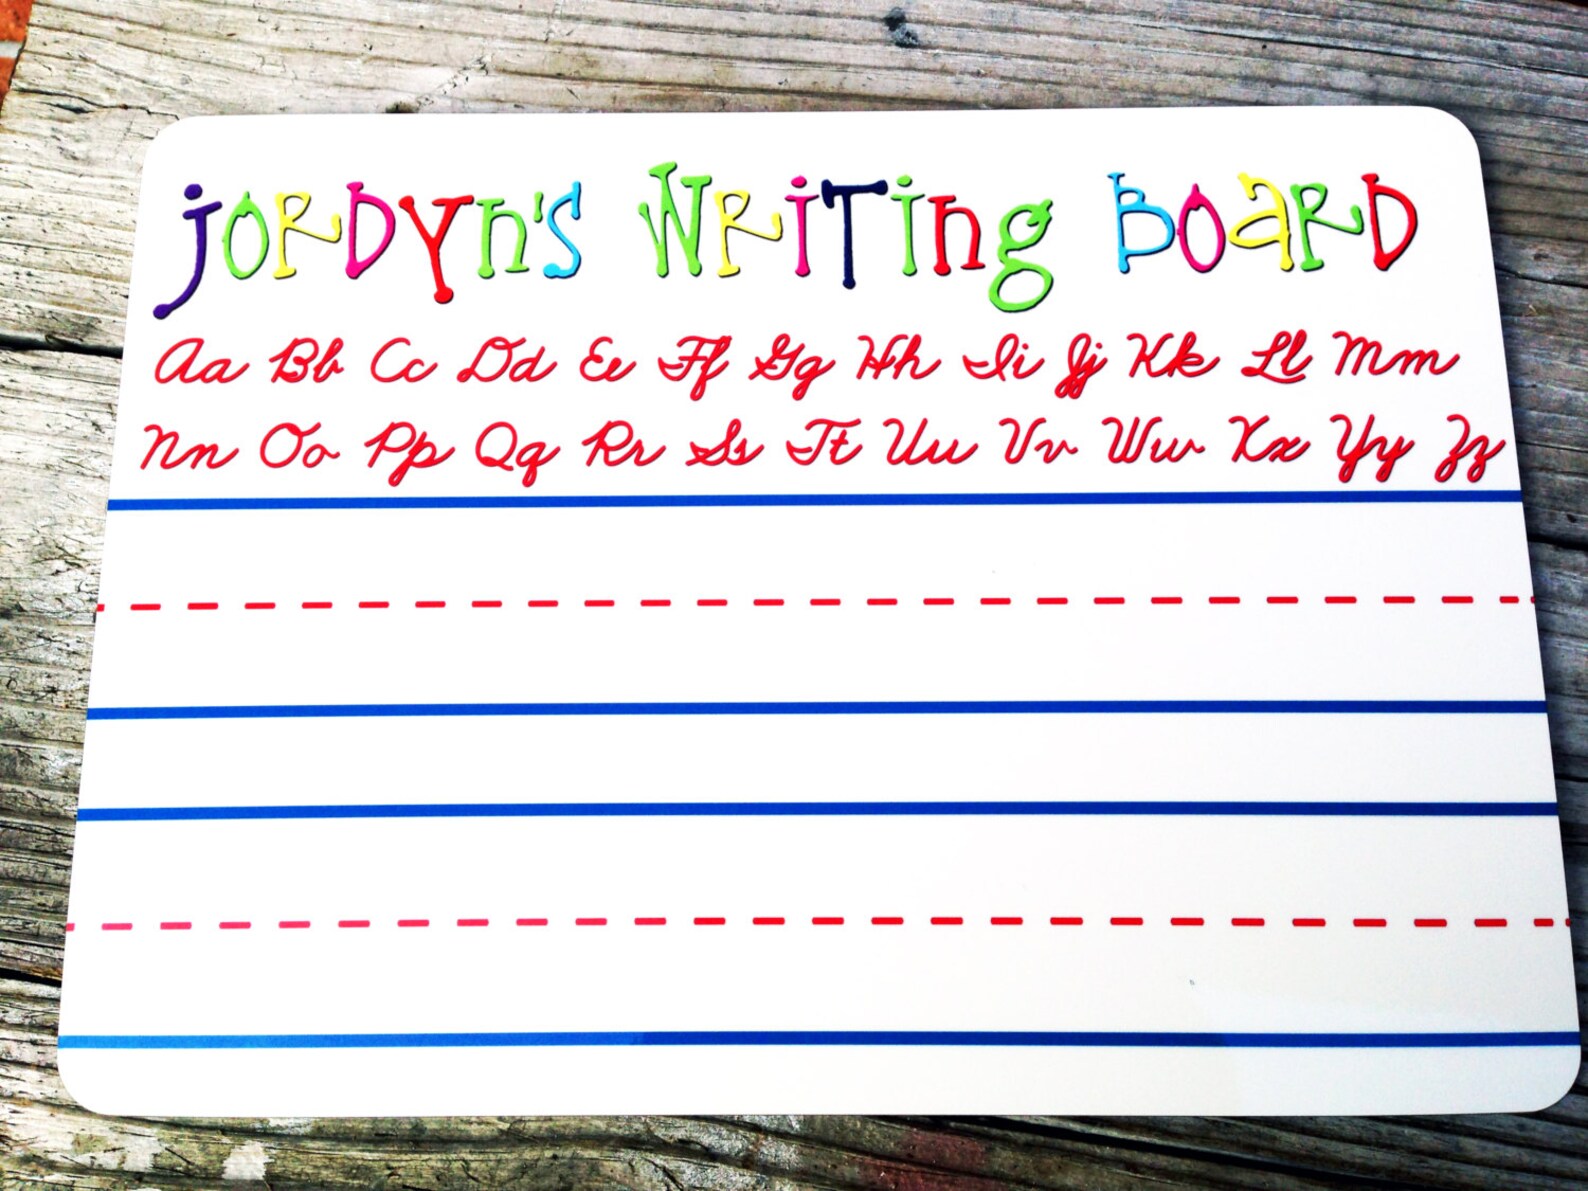 jORDYn's WRiTing BOaRD
Aa Bb Cc Dd Ee Ff Gg Hh Ii Jj Kk Ll Mm
Nn Oo Pp Qq Rr Ss Tt Uu Vv Ww Xx Yy Zz